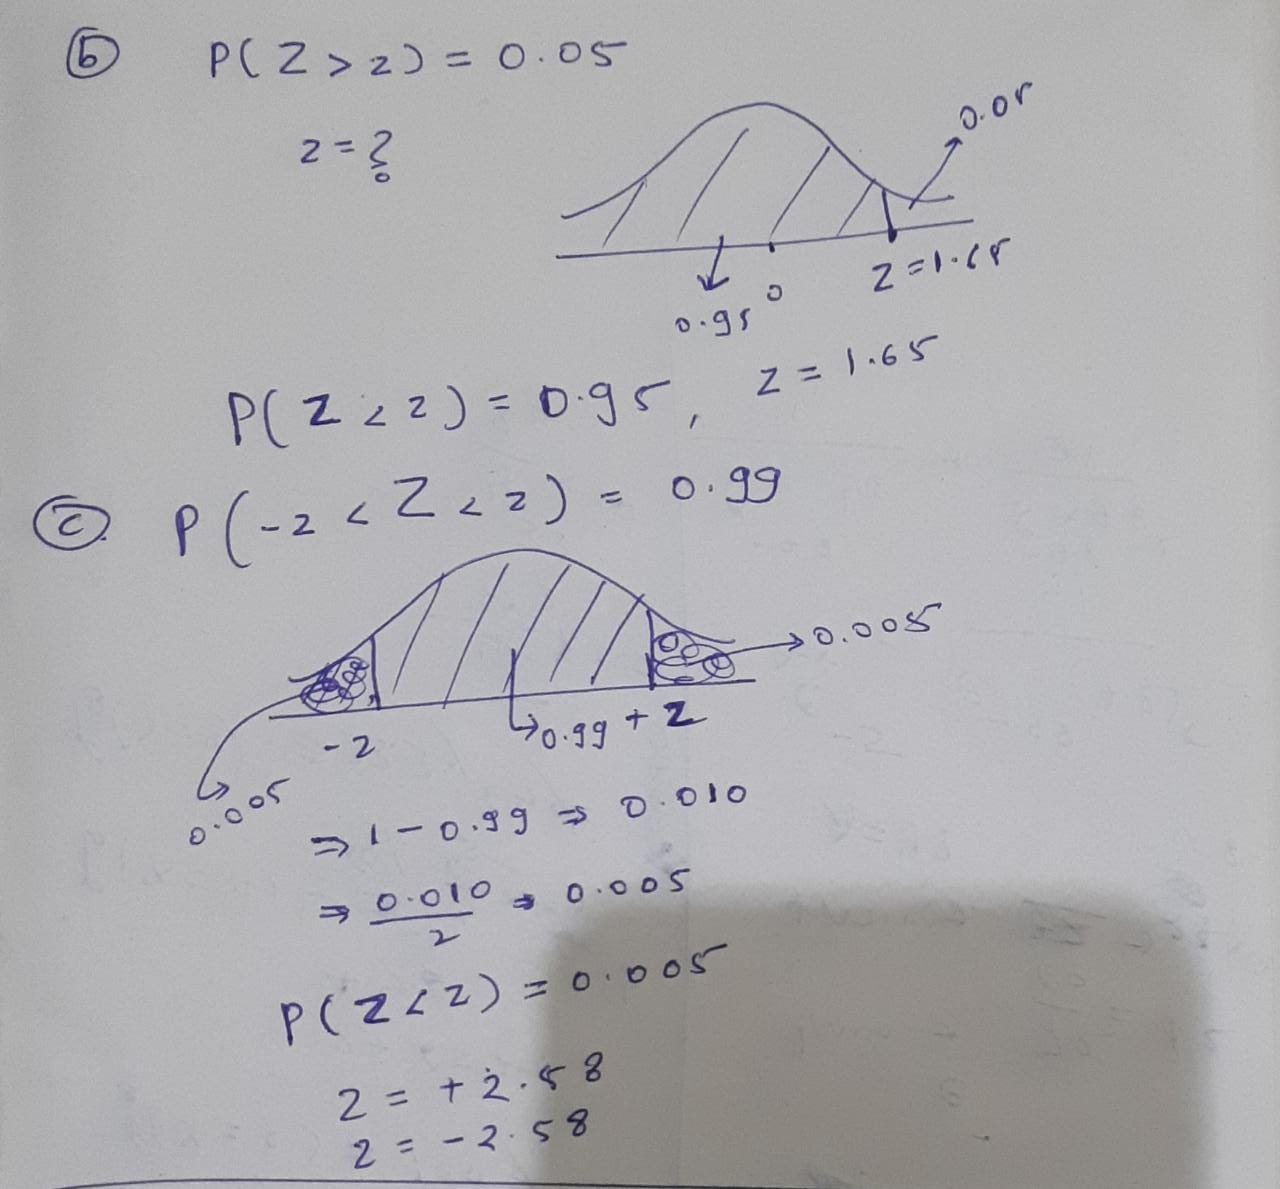 (b) P(Z > z) = 0.05
z = ?
0.05
0.95
0
Z = 1.65
P(Z < z) = 0.95, z = 1.65
(c) P(-z < Z < z) = 0.99
0.005
-z
0.99
+z
0.005
⇒ 1 - 0.99 ⇒ 0.010
⇒ 0.010/2 ⇒ 0.005
P(Z < z) = 0.005
z = +2.58
z = -2.58